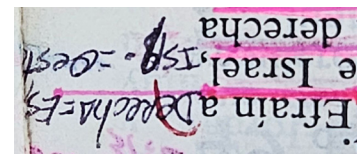 Efraín a Derecha = Es
e Israel, ISR. = Oest
derecha